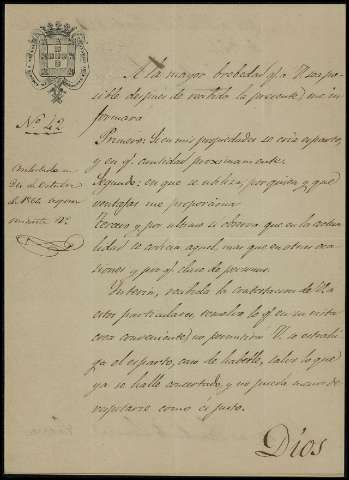 A la mayor brebedad q.e a V. sea po-
sible despues de recibida la presente, me in-
formara
Nº 42
Primero: Si en mis propiedades se cria esparto,
y en q.e cantidad proximamente.
Segundo: en que se utiliza, por quien y que
ventajas me proporciona
Tercero y por ultimo si observa que en la actua-
lidad se codicia aquel, mas que en otras oca-
siones y por q.e clase de personas.
Contestada en
24 de Octubre
de 1862
Interin, recibida la contestacion de V. a
estos particulares, resuelvo lo q.e en su vista
crea conveniente, no permitirá V. se estrai-
ga el esparto, caso de haberlo, salvo lo que
ya se halle concertado, y no pueda menos de
respetarse como es justo.
Dios